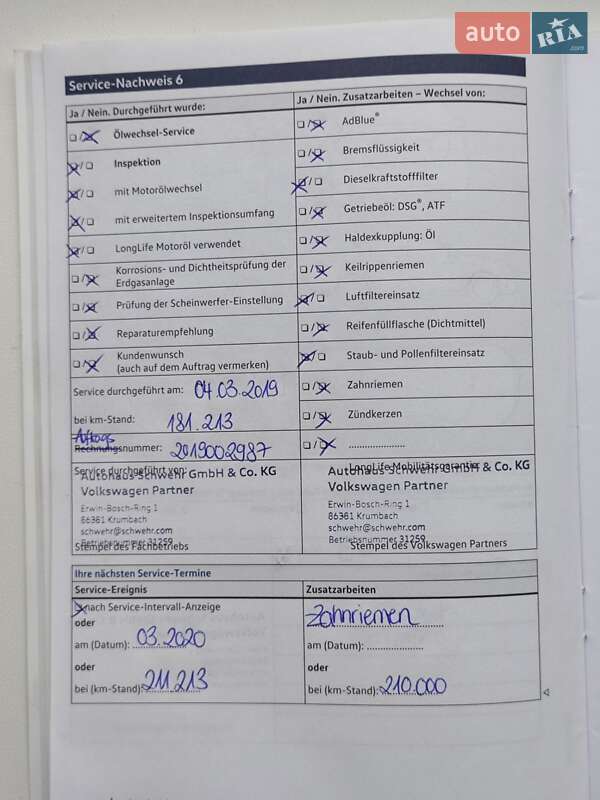 auto RIA .com
Service-Nachweis 6
Ja / Nein. Durchgeführt wurde:
❏/❏ Ölwechsel-Service
❏/❏ Inspektion
❏/❏ mit Motorölwechsel
❏/❏ mit erweitertem Inspektionsumfang
❏/❏ LongLife Motoröl verwendet
❏/❏ Korrosions- und Dichtheitsprüfung der
Erdgasanlage
❏/❏ Prüfung der Scheinwerfer-Einstellung
❏/❏ Reparaturempfehlung
❏/❏ Kundenwunsch
(auch auf dem Auftrag vermerken)
Service durchgeführt am: 04.03.2019
bei km-Stand: 181.213
Auftrags
Rechnungsnummer: 2019002987
Ja / Nein. Zusatzarbeiten – Wechsel von:
❏/❏ AdBlue®
❏/❏ Bremsflüssigkeit
❏/❏ Dieselkraftstofffilter
❏/❏ Getriebeöl: DSG®, ATF
❏/❏ Haldexkupplung: Öl
❏/❏ Keilrippenriemen
❏/❏ Luftfiltereinsatz
❏/❏ Reifenfüllflasche (Dichtmittel)
❏/❏ Staub- und Pollenfiltereinsatz
❏/❏ Zahnriemen
❏/❏ Zündkerzen
❏/❏ ....................
Service durchgeführt von:
Autohaus Schwehr GmbH & Co. KG
Volkswagen Partner
Erwin-Bosch-Ring 1
86381 Krumbach
schwehr@schwehr.com
Betriebsnummer 31259
Stempel des Fachbetriebs
LongLife Mobilitätsgarantie
Autohaus Schwehr GmbH & Co. KG
Volkswagen Partner
Erwin-Bosch-Ring 1
86381 Krumbach
schwehr@schwehr.com
Betriebsnummer 31259
Stempel des Volkswagen Partners
Ihre nächsten Service-Termine
Service-Ereignis
❏ nach Service-Intervall-Anzeige
oder
am (Datum): 03.2020
oder
bei (km-Stand): 211.213
Zusatzarbeiten
Zahnriemen
am (Datum): ....................
oder
bei (km-Stand): 210.000